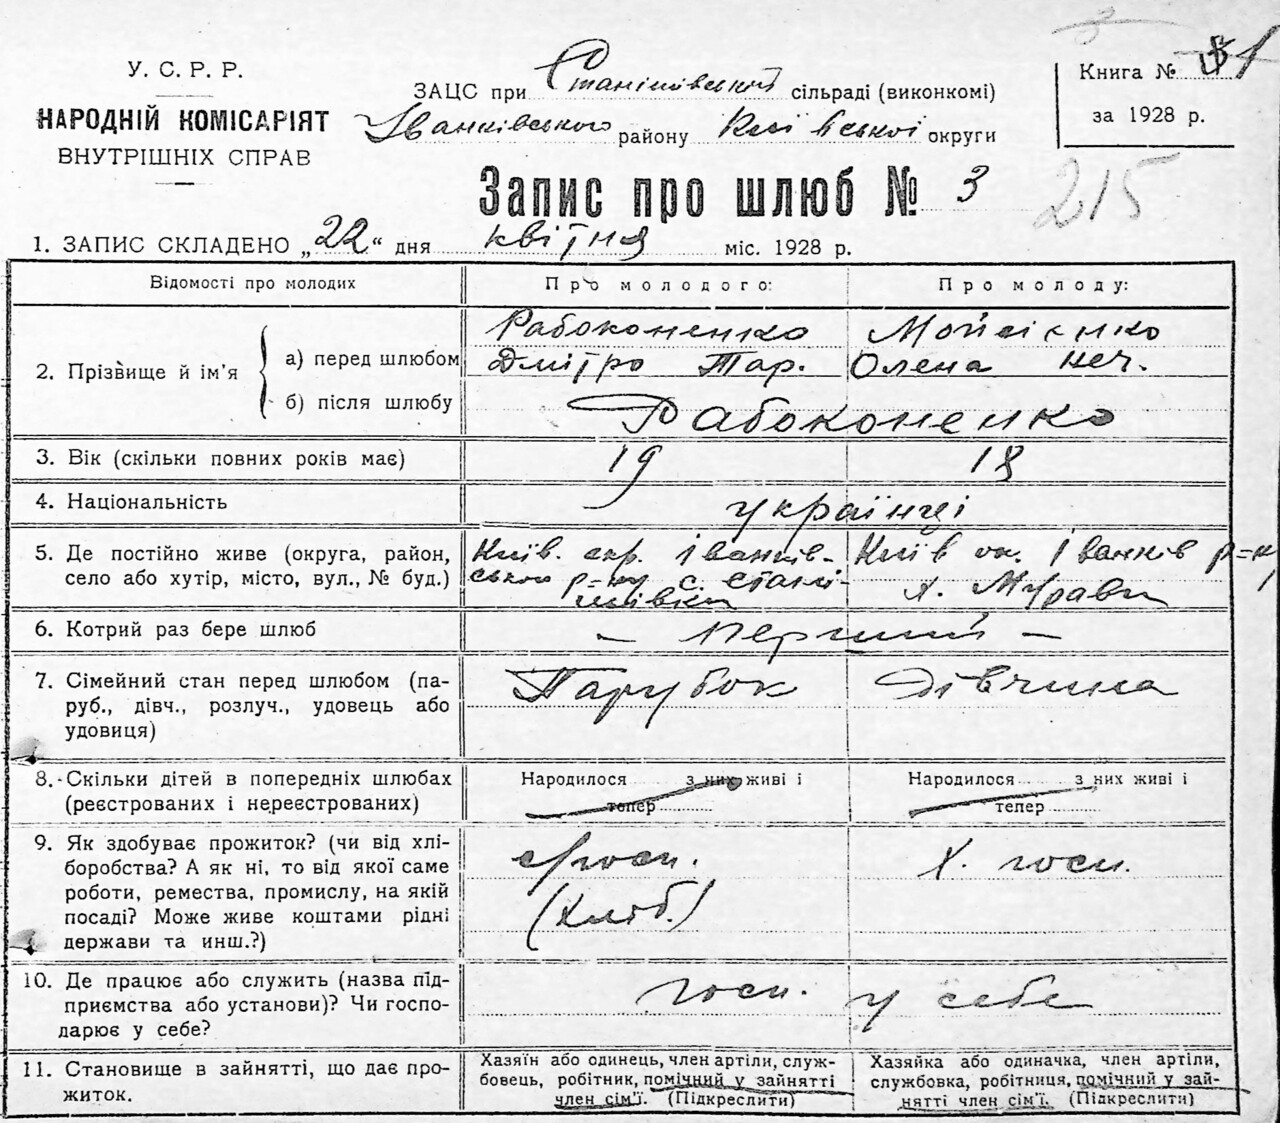 У. С. Р. Р.
НАРОДНІЙ КОМІСАРІЯТ
ВНУТРІШНІХ СПРАВ
ЗАЦС при Станішівській сільраді (виконкомі)
Іванківського району Київської округи
Книга №
за 1928 р.
Запис про шлюб № 3
215
1. ЗАПИС СКЛАДЕНО „22“ дня квітня міс. 1928 р.
Відомості про молодих Про молодого: Про молоду:
2. Прізвище й ім'я
а) перед шлюбом
Рабоконенко Мойсієнко
Дмітро Тар. Олена Неч.
б) після шлюбу
Рабоконенко
3. Вік (скільки повних років має) 19 18
4. Національність українці
5. Де постійно живе (округа, район,
село або хутір, місто, вул., № буд.)
Київ. окр. Іванків-
ського р=ну с. Стані-
шівка
Київ ок. Іванків р=н
х. Мурави
6. Котрий раз бере шлюб — перший —
7. Сімейний стан перед шлюбом (па-
руб., дівч., розлуч., удовець або
удовиця)
Парубок Дівчина
8. Скільки дітей в попередніх шлюбах
(реєстрованих і нереєстрованих)
Народилося з них живі і
тепер
Народилося з них живі і
тепер
9. Як здобуває прожиток? (чи від хлі-
боробства? А як ні, то від якої саме
роботи, ремества, промислу, на якій
посаді? Може живе коштами рідні
держави та инш.?)
с/госп.
(хліб.)
Х. госп.
10. Де працює або служить (назва під-
приємства або установи)? Чи госпо-
дарює у себе?
госп. у себе
11. Становище в зайнятті, що дає про-
житок.
Хазяїн або одинець, член артілі, служ-
бовець, робітник, помічний у зайнятті
член сім'ї. (Підкреслити)
Хазяйка або одиначка, член артіли,
службовка, робітниця, помічний у зай-
нятті член сім'ї. (Підкреслити)